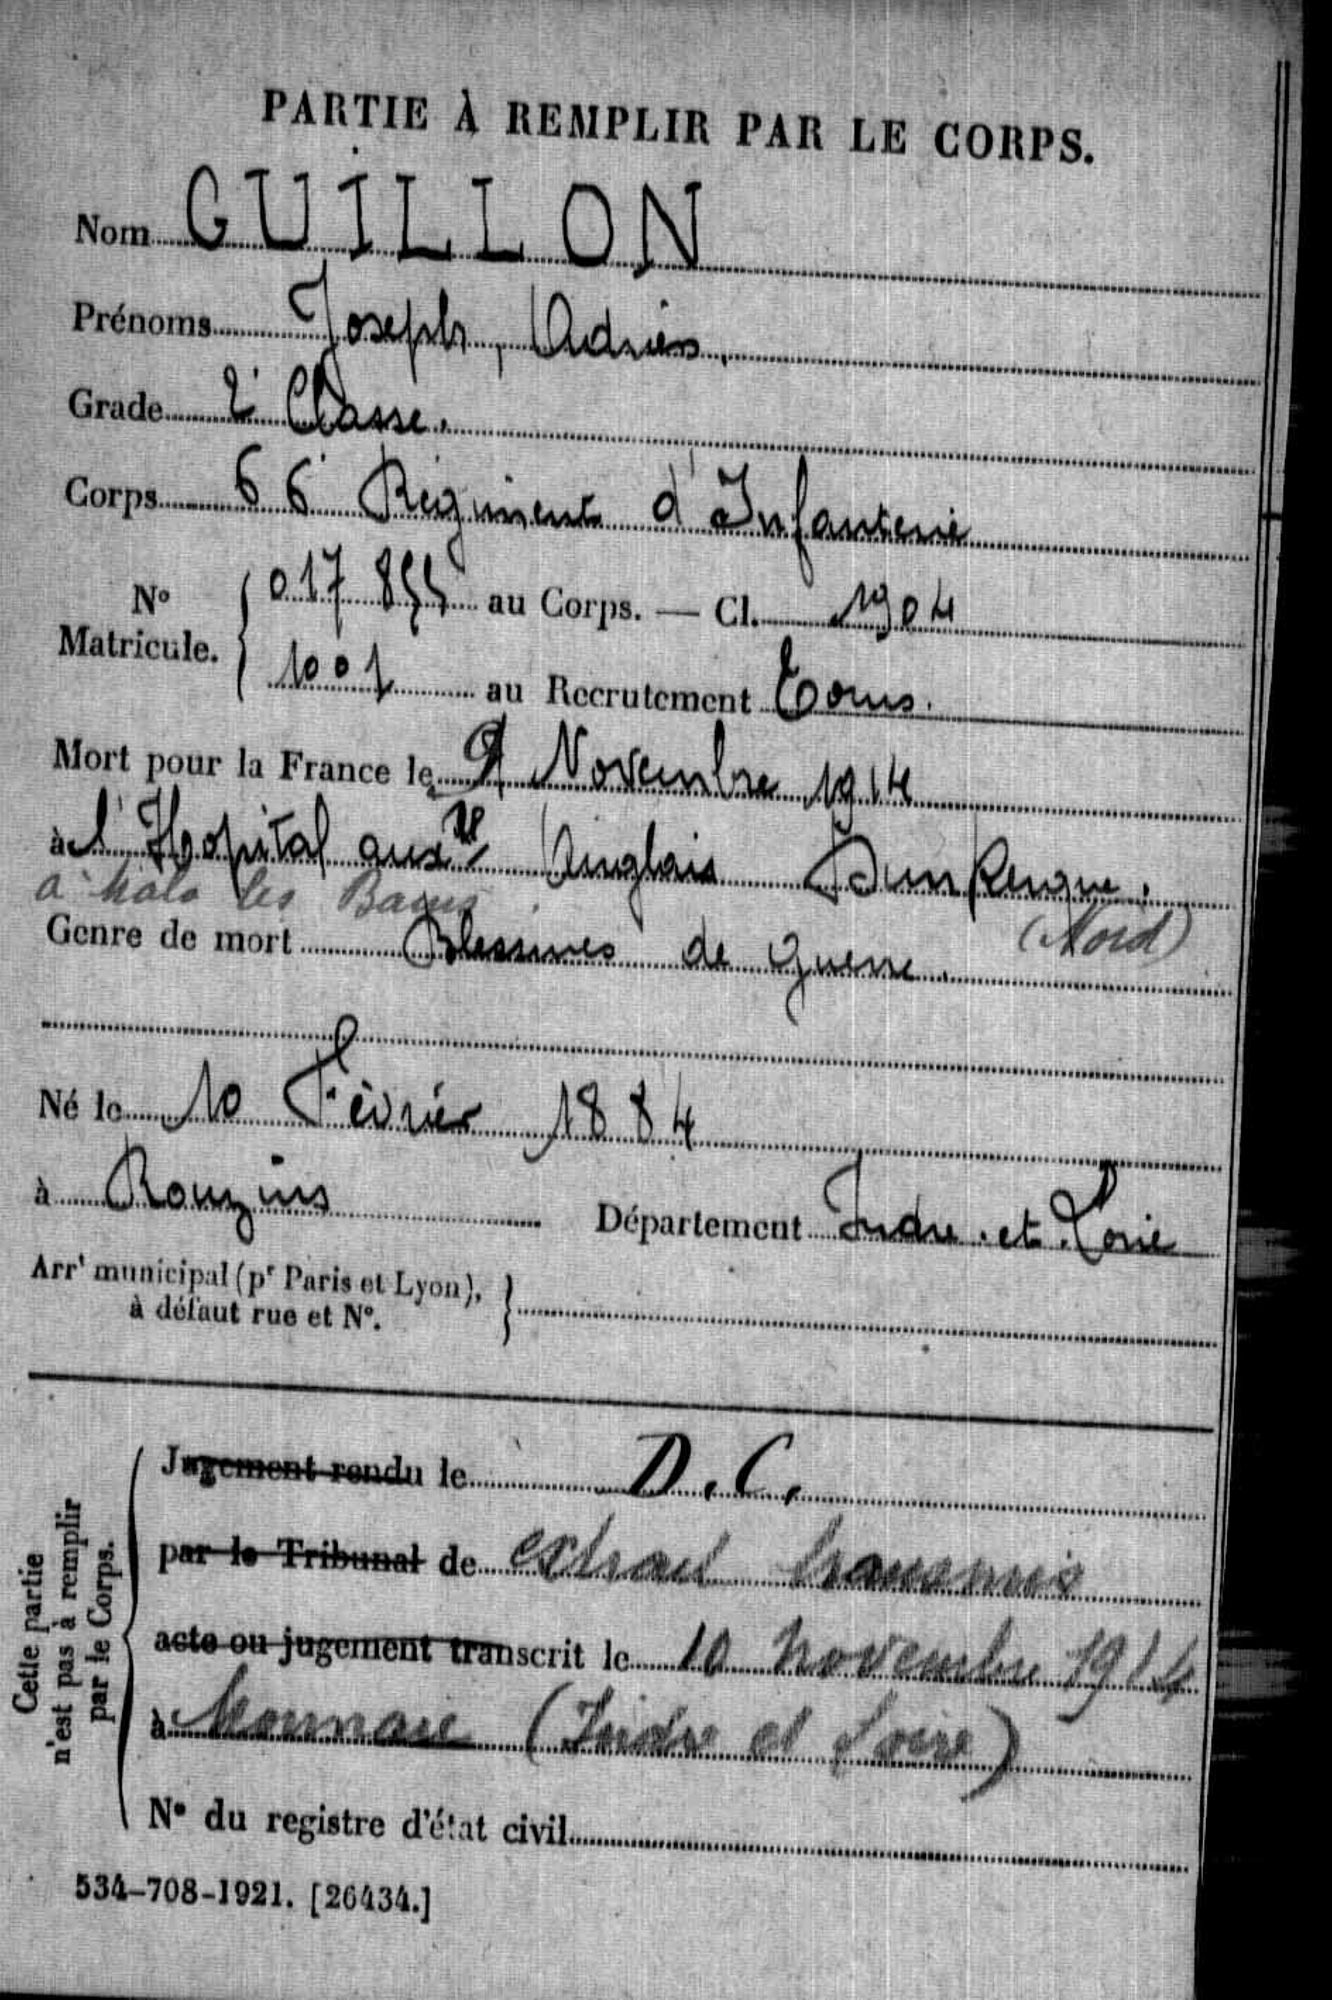 PARTIE À REMPLIR PAR LE CORPS.
Nom GUILLON
Prénoms Joseph, Adrien,
Grade 2e Classe.
Corps 66e Régiment d'Infanterie
No Matricule. { 017 855 au Corps. — Cl. 1904
1001 au Recrutement Tours.
Mort pour la France le 9 Novembre 1914
à l'Hopital auxre Anglais Dunkerque.
à Malo les Bains (Nord)
Genre de mort Blessures de guerre.
Né le 10 Février 1884
à Rouzins Département Indre et Loire
Arrt municipal (pr Paris et Lyon),
à défaut rue et No. }
Cette partie
n'est pas à remplir
par le Corps.
Jugement rendu le D.C.
par le Tribunal de extrait transmis
acte ou jugement transcrit le 10 novembre 1914
à Monnaie (Indre et Loire)
No du registre d'état civil
534-708-1921. [26434.]